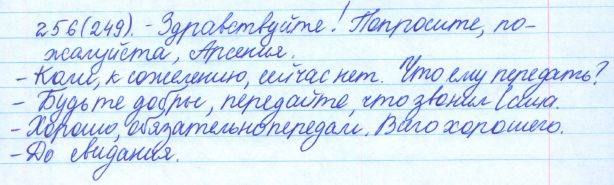 256(249). - Здравствуйте! Попросите, по-
жалуйста, Арсения.
- Коли, к сожелению, сейчас нет. Что ему передать?
- Будьте добры, передайте, что звонил Саша.
- Хорошо, обязательно передам. Всего хорошего.
- До свидания.